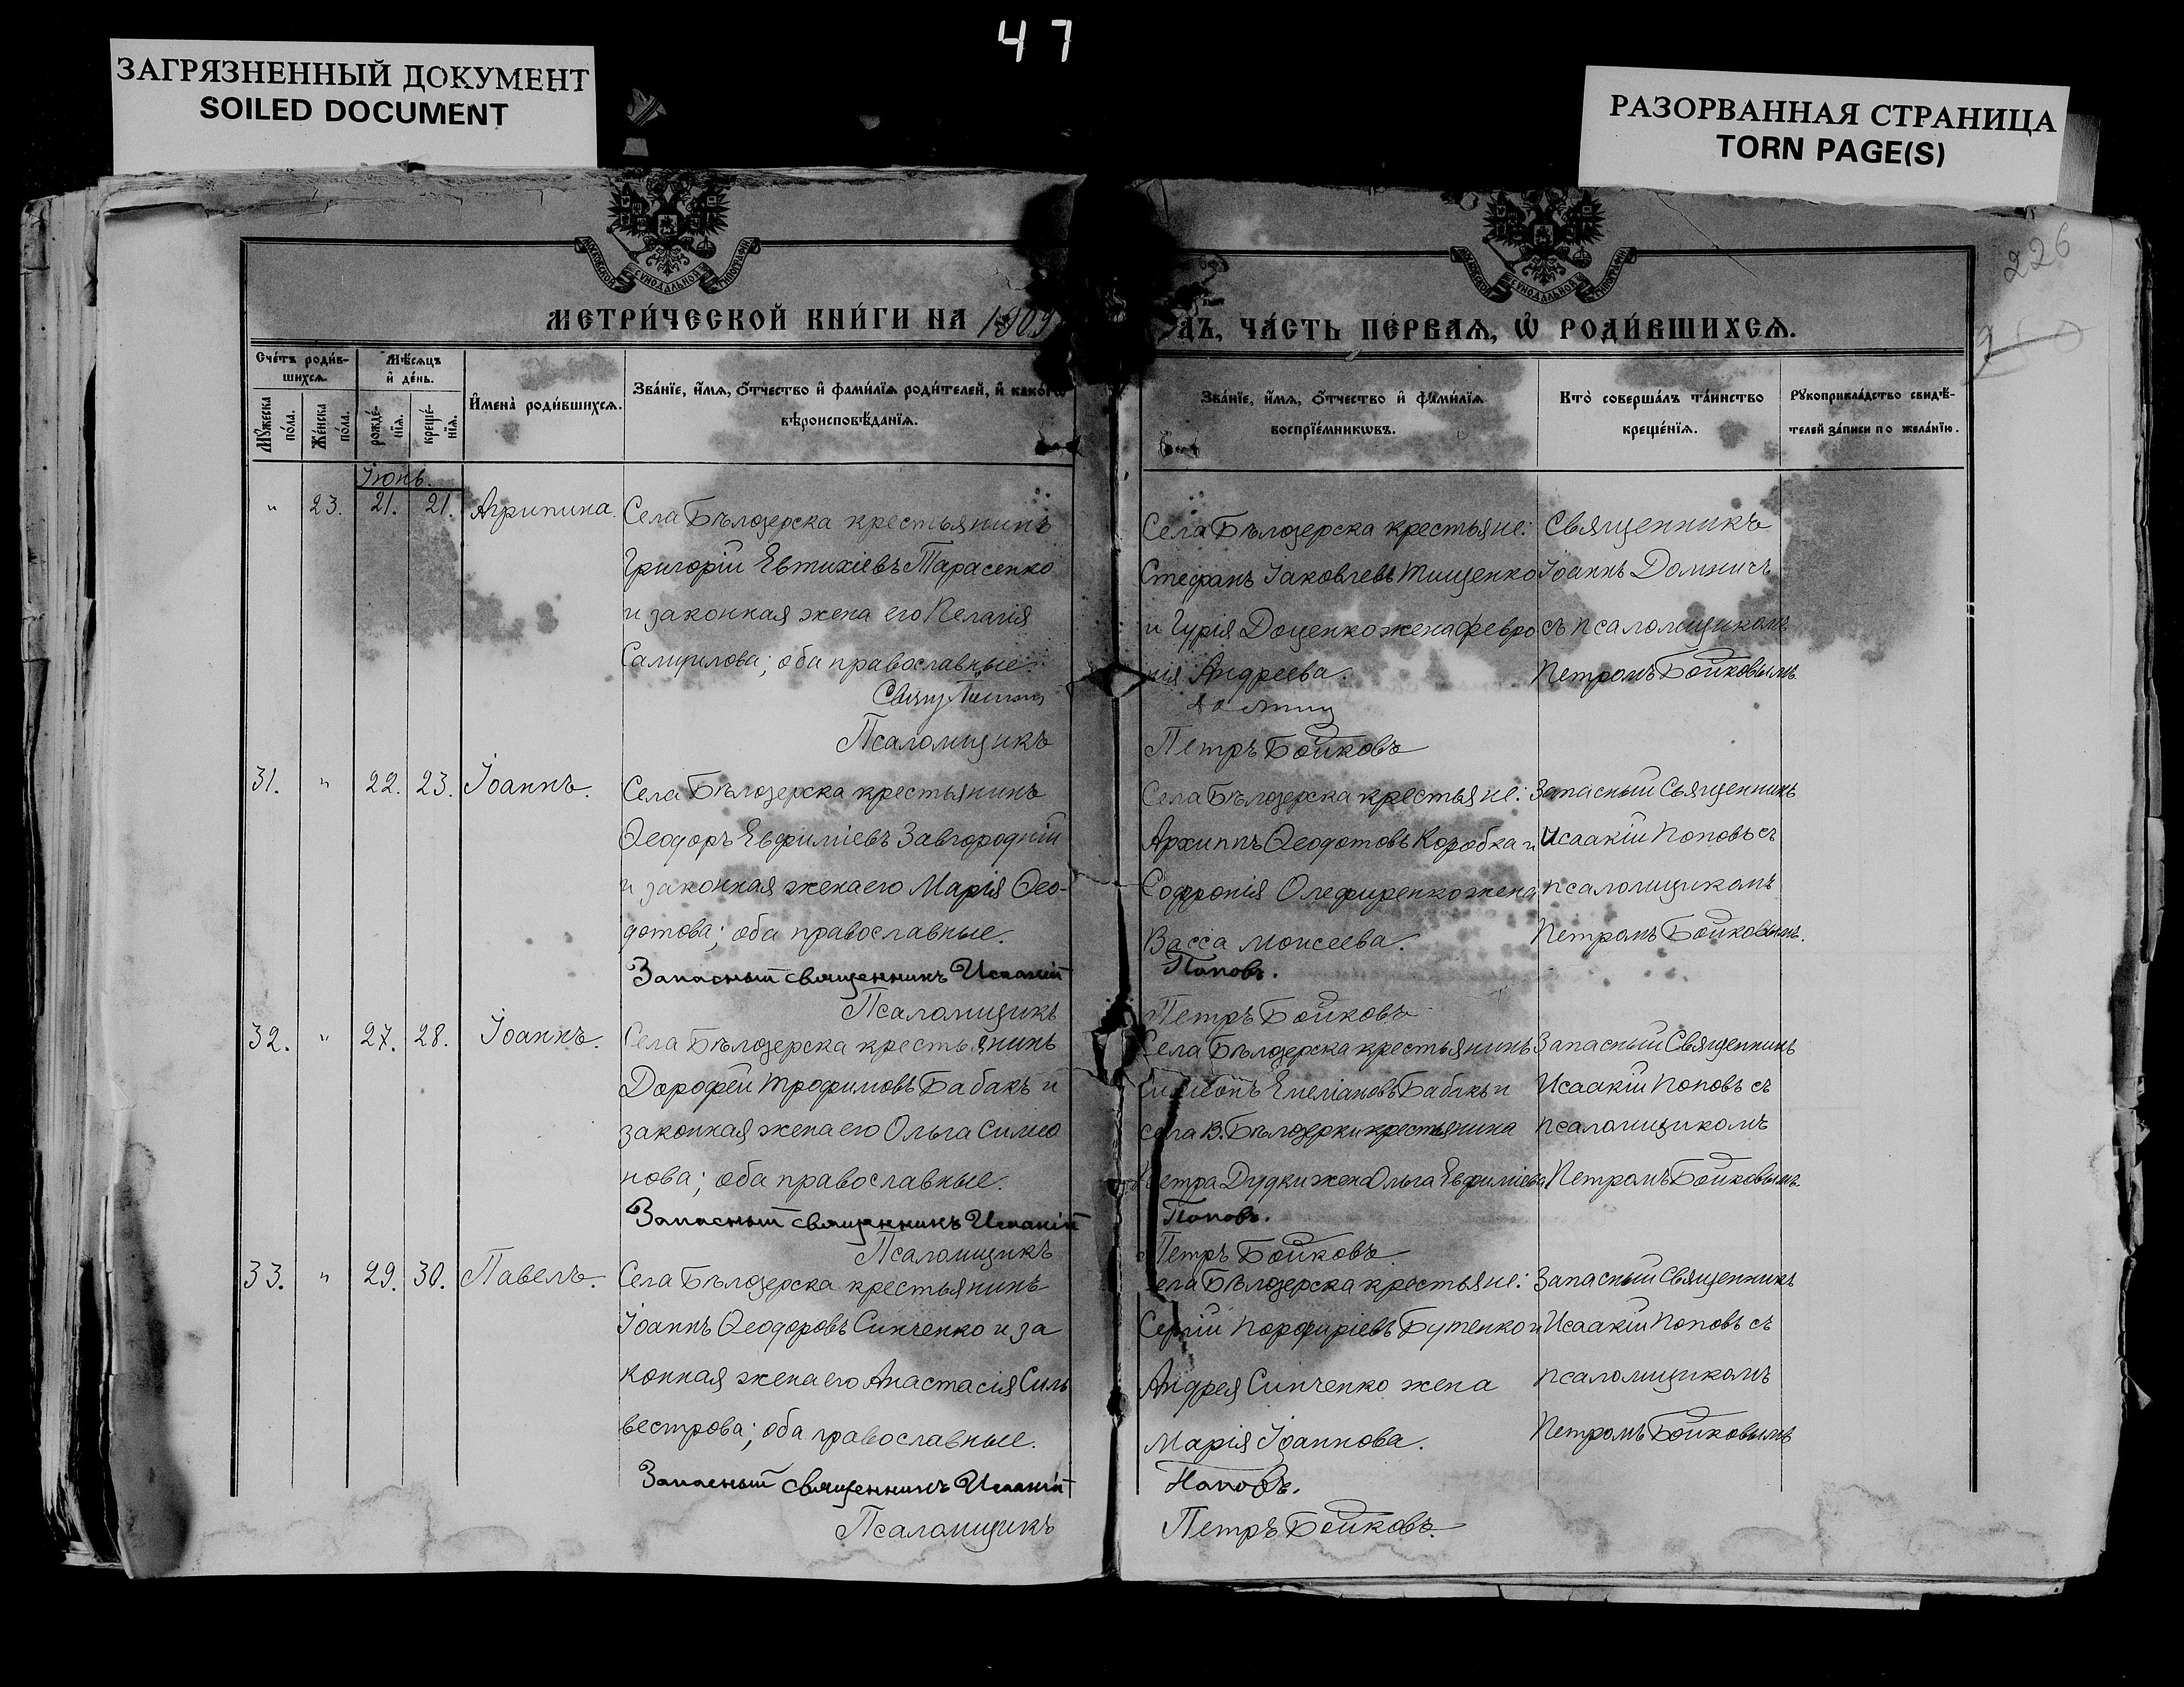 47
ЗАГРЯЗНЕННЫЙ ДОКУМЕНТ
SOILED DOCUMENT
РАЗОРВАННАЯ СТРАНИЦА
TORN PAGE(S)
226
МОСКОВСКОЙ СѴНОДАЛЬНОЙ ТИПОГРАФІИ
МОСКОВСКОЙ СѴНОДАЛЬНОЙ ТИПОГРАФІИ
МЕТРИ́ЧЕСКОЙ КНИ́ГИ НА 1909
ДЪ, ЧА́СТЬ ПЕ́РВАѦ, Ѽ РОДИ́ВШИХСѦ.
Сче́тъ роди́в-
шихсѧ.
Мѣ́сѧцъ
и҆ де́нь.
Мꙋ́жеска
по́ла.
Же́нска
по́ла.
рожде́-
нїѧ.
креще́-
нїѧ.
И҆мена̀ роди́вшихсѧ.
Зва́нїе, и҆́мѧ, ѻ҆́тчество и҆ фами́лїѧ роди́телей, и҆ како́гѡ
вѣроисповѣ́данїѧ.
Зва́нїе, и҆́мѧ, ѻ҆́тчество и҆ фами́лїѧ
воспрїе́мникѡвъ.
Кто̀ соверша́лъ та́инство
креще́нїѧ.
Рꙋкоприкла́дство свидѣ́-
телей за́писи по жела́нїю.
Іюнь.
" 23. 21. 21. Агрипина.
Села Бѣлозерска крестьянинъ
Григорій Евтихіевъ Тарасенко
и законная жена его Пелагія
Самуилова; оба православные.
Псаломщикъ
Села Бѣлозерска крестьяне:
Стефанъ Іаковлевъ Тищенко
и Гурія Доценко жена Февро
нія Андреева.
Петръ Бойковъ
Священникъ
Іоаннъ Домнич
съ псаломщикомъ
Петромъ Бойковымъ.
31. " 22. 23. Іоаннъ.
Села Бѣлозерска крестьянинъ
Ѳеодоръ Евфиміевъ Завгородній
и законная жена его Марія Ѳео-
дотова; оба православные.
Запасный священникъ Исаакій
Псаломщикъ
Села Бѣлозерска крестьяне:
Архиппъ Ѳеодотовъ Коробка и
Софронія Олефиренко жена
Васса Моисеева.
Поповъ.
Петръ Бойковъ
Запасный Священникъ
Исаакій Поповъ съ
псаломщикомъ
Петромъ Бойковымъ.
32. " 27. 28. Іоаннъ.
Села Бѣлозерска крестьянинъ
Дорофей Трофимовъ Бабакъ и
законная жена его Ольга Симео
нова; оба православные.
Запасный священникъ Исаакій
Псаломщикъ
Села Бѣлозерска крестьянинъ
Симеонъ Емеліановъ Бабакъ и
села В. Бѣлозерки крестьянина
Петра Дудки жена Ольга Евфиміева.
Поповъ.
Петръ Бойковъ
Запасный Священникъ
Исаакій Поповъ съ
псаломщикомъ
Петромъ Бойковымъ.
33. " 29. 30. Павелъ.
Села Бѣлозерска крестьянинъ
Іоаннъ Ѳеодоровъ Синченко и за
конная жена его Анастасія Силь
вестрова; оба православные.
Запасный священникъ Исаакій
Псаломщикъ
Села Бѣлозерска крестьяне:
Сергій Порфиріевъ Бутенко и
Андрея Синченко жена
Марія Іоаннова.
Поповъ.
Петръ Бойковъ.
Запасный Священникъ
Исаакій Поповъ съ
псаломщикомъ
Петромъ Бойковымъ